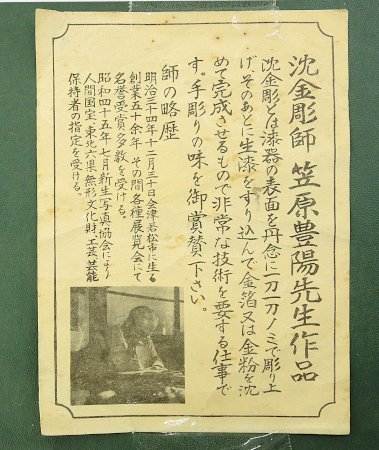 沈金彫師 笠原豊陽先生作品
沈金彫とは漆器の表面を丹念に一刀一刀ノミで彫り上
げそのあとに生漆をすり込んで金箔又は金粉を沈
めて完成させるもので非常な技術を要する仕事で
す。手彫りの味を御賞賛下さい。
師の略歴
明治三十四年十二月三十日会津若松市に生る
創業五十余年 その間各種展覧会にて
名誉受賞多数を受ける。
昭和四十五年七月新生写真協会により
人間国宝、東北六県無形文化財、工芸、芸能
保持者の指定を受ける。